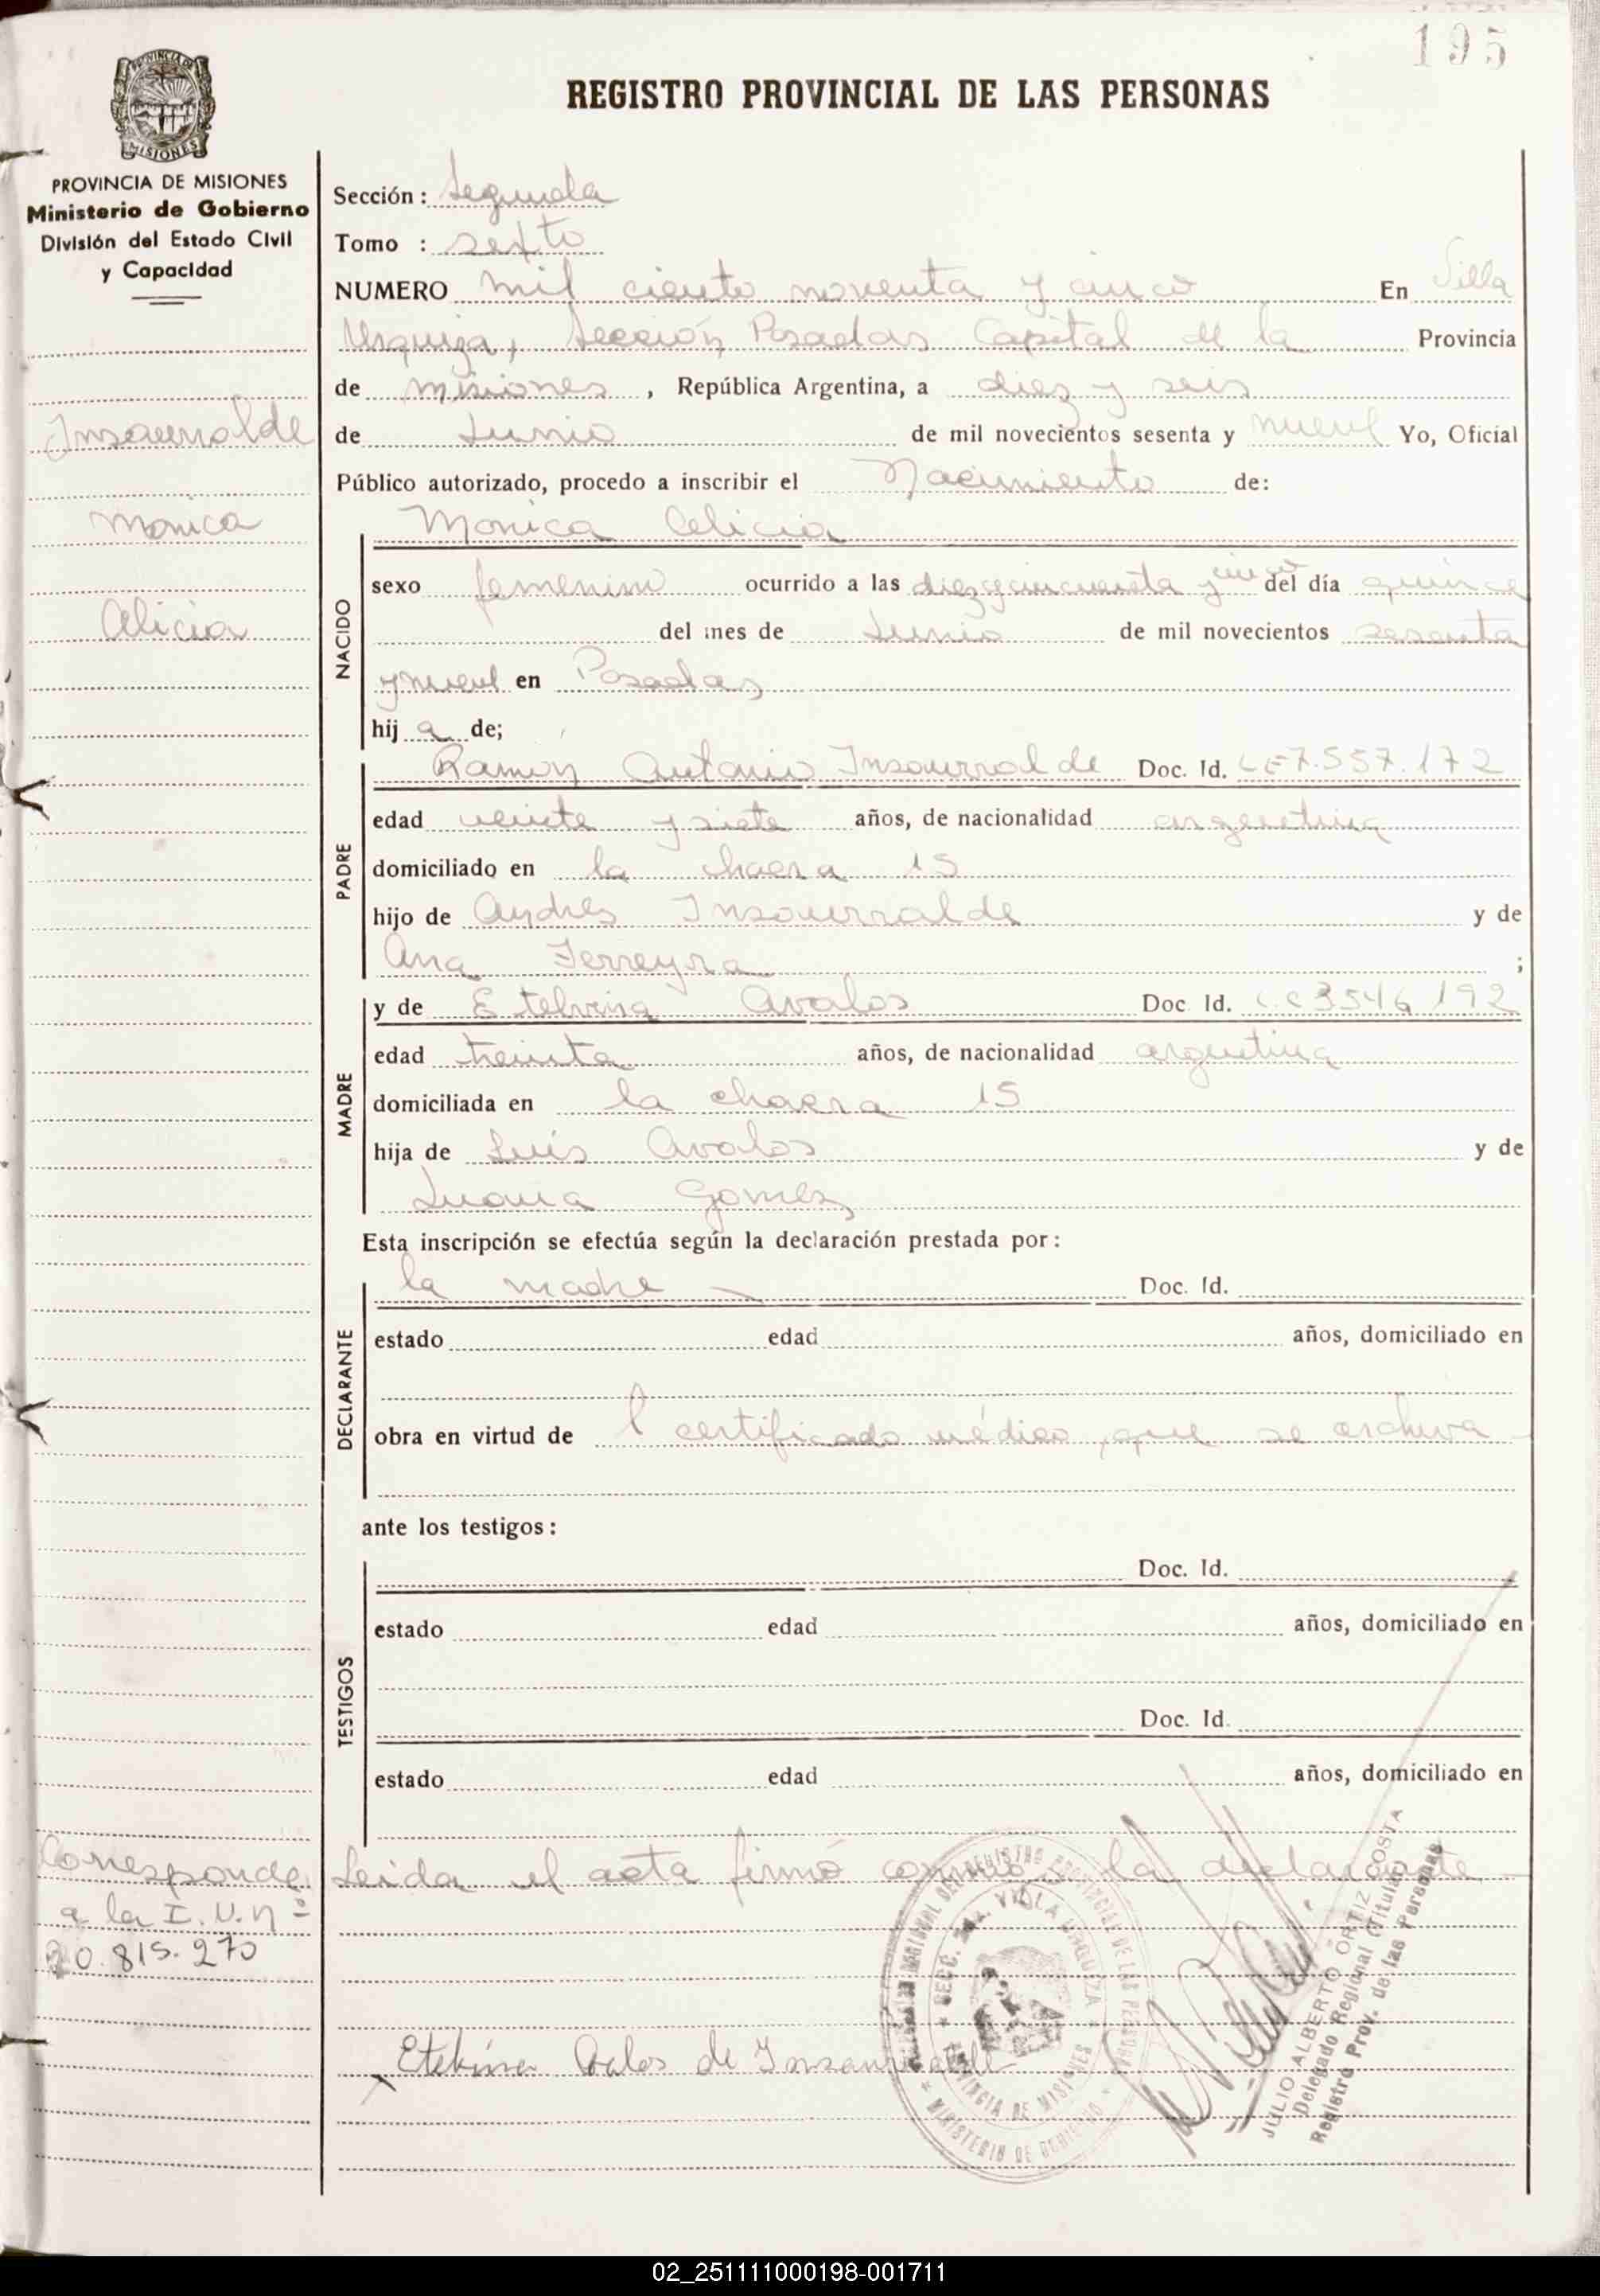 195
REGISTRO PROVINCIAL DE LAS PERSONAS
PROVINCIA DE MISIONES
MISIONES
PROVINCIA DE MISIONES
Ministerio de Gobierno
División del Estado Civil
y Capacidad
Insaurralde
Monica
Alicia
Sección: Segunda
Tomo : sexto
NUMERO mil ciento noventa y cinco En Villa
Urquiza, Sección Posadas Capital de la Provincia
de Misiones, República Argentina, a diez y seis
de Junio de mil novecientos sesenta y nueve Yo, Oficial
Público autorizado, procedo a inscribir el Nacimiento de:
NACIDO
Monica Alicia
sexo femenino ocurrido a las diez y cincuenta y cinco del día quince
del mes de Junio de mil novecientos sesenta
y nueve en Posadas
hij a de;
PADRE
Ramón Antonio Insaurralde Doc. Id. LE 7.557.172
edad veinte y siete años, de nacionalidad argentina
domiciliado en la chacra 15
hijo de Andrés Insaurralde y de
Ana Ferreyra ;
MADRE
y de Etelvina Avalos Doc. Id. L.C 3546192
edad treinta años, de nacionalidad argentina
domiciliada en la chacra 15
hija de Luis Avalos y de
Juana Gomez
Esta inscripción se efectúa según la declaración prestada por:
DECLARANTE
la madre Doc. Id.
estado edad años, domiciliado en
obra en virtud de l certificado médico, que se archiva
ante los testigos:
TESTIGOS
Doc. Id.
estado edad años, domiciliado en
Doc. Id.
estado edad años, domiciliado en
Leida el acta firmó conmigo la declarante
Corresponde
a la I.U.nº
20.815.270
Etelvina Avalos de Insaurralde
REGISTRO PROVINCIAL DE LAS PERSONAS
SECC. 2da. VILLA URQUIZA
PROVINCIA DE MISIONES
MINISTERIO DE GOBIERNO
JULIO ALBERTO ORTIZ COSTA
Delegado Regional (Titular)
Registro Prov. de las Personas
02_251111000198-001711